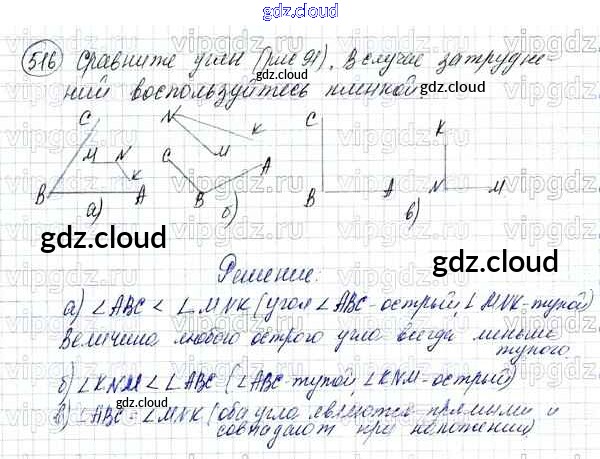 gdz.cloud
516 Сравните углы (рис 91). В случае затрудне-
ний воспользуйтесь пленкой
C
N
C
K
M N
K
C
M
A
K
B
A
B
B
A
N
M
а)
б)
в)
gdz.cloud
gdz.cloud
gdz.cloud
Решение:
а) ∠ABC < ∠MNK (угол ∠ABC-острый, ∠MNK-тупой)
Величина любого острого угла всегда меньше
тупого.
б) ∠KNM < ∠ABC (∠ABC-тупой, ∠KNM-острый)
gdz.cloud
gdz.cloud
в) ∠ABC = ∠MNK (оба угла являются прямыми и
совпадают при наложении)